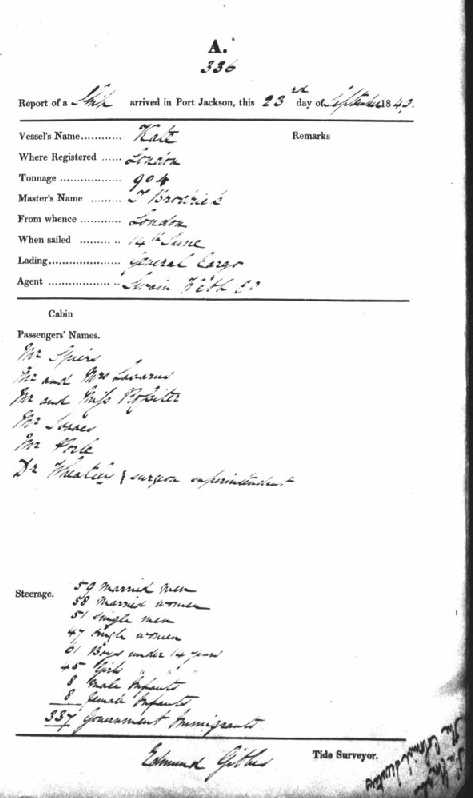 A.
336
Report of a Ship arrived in Port Jackson, this 23rd day of September 184
Vessel's Name............ Kate
Remarks
Where Registered ...... London
Tonnage .................. 904
Master's Name ......... T Brodrick
From whence ............ London
When sailed ............. 14th June
Lading..................... General Cargo
Agent ..................... Swain Webb & Co
Cabin
Passengers' Names.
Mr Spiers
Mr and Mrs Lazarus
Mr and Miss Rossiter
Mr Isaacs
Mr
Dr } surgeon superintendent
Steerage.
59 married men
58 married women
51 single men
47 single women
61 Boys under 14 years
45 Girls
8 male Infants
8 female Infants
337 Government Immigrants
Edmund Gibbes Tide Surveyor.